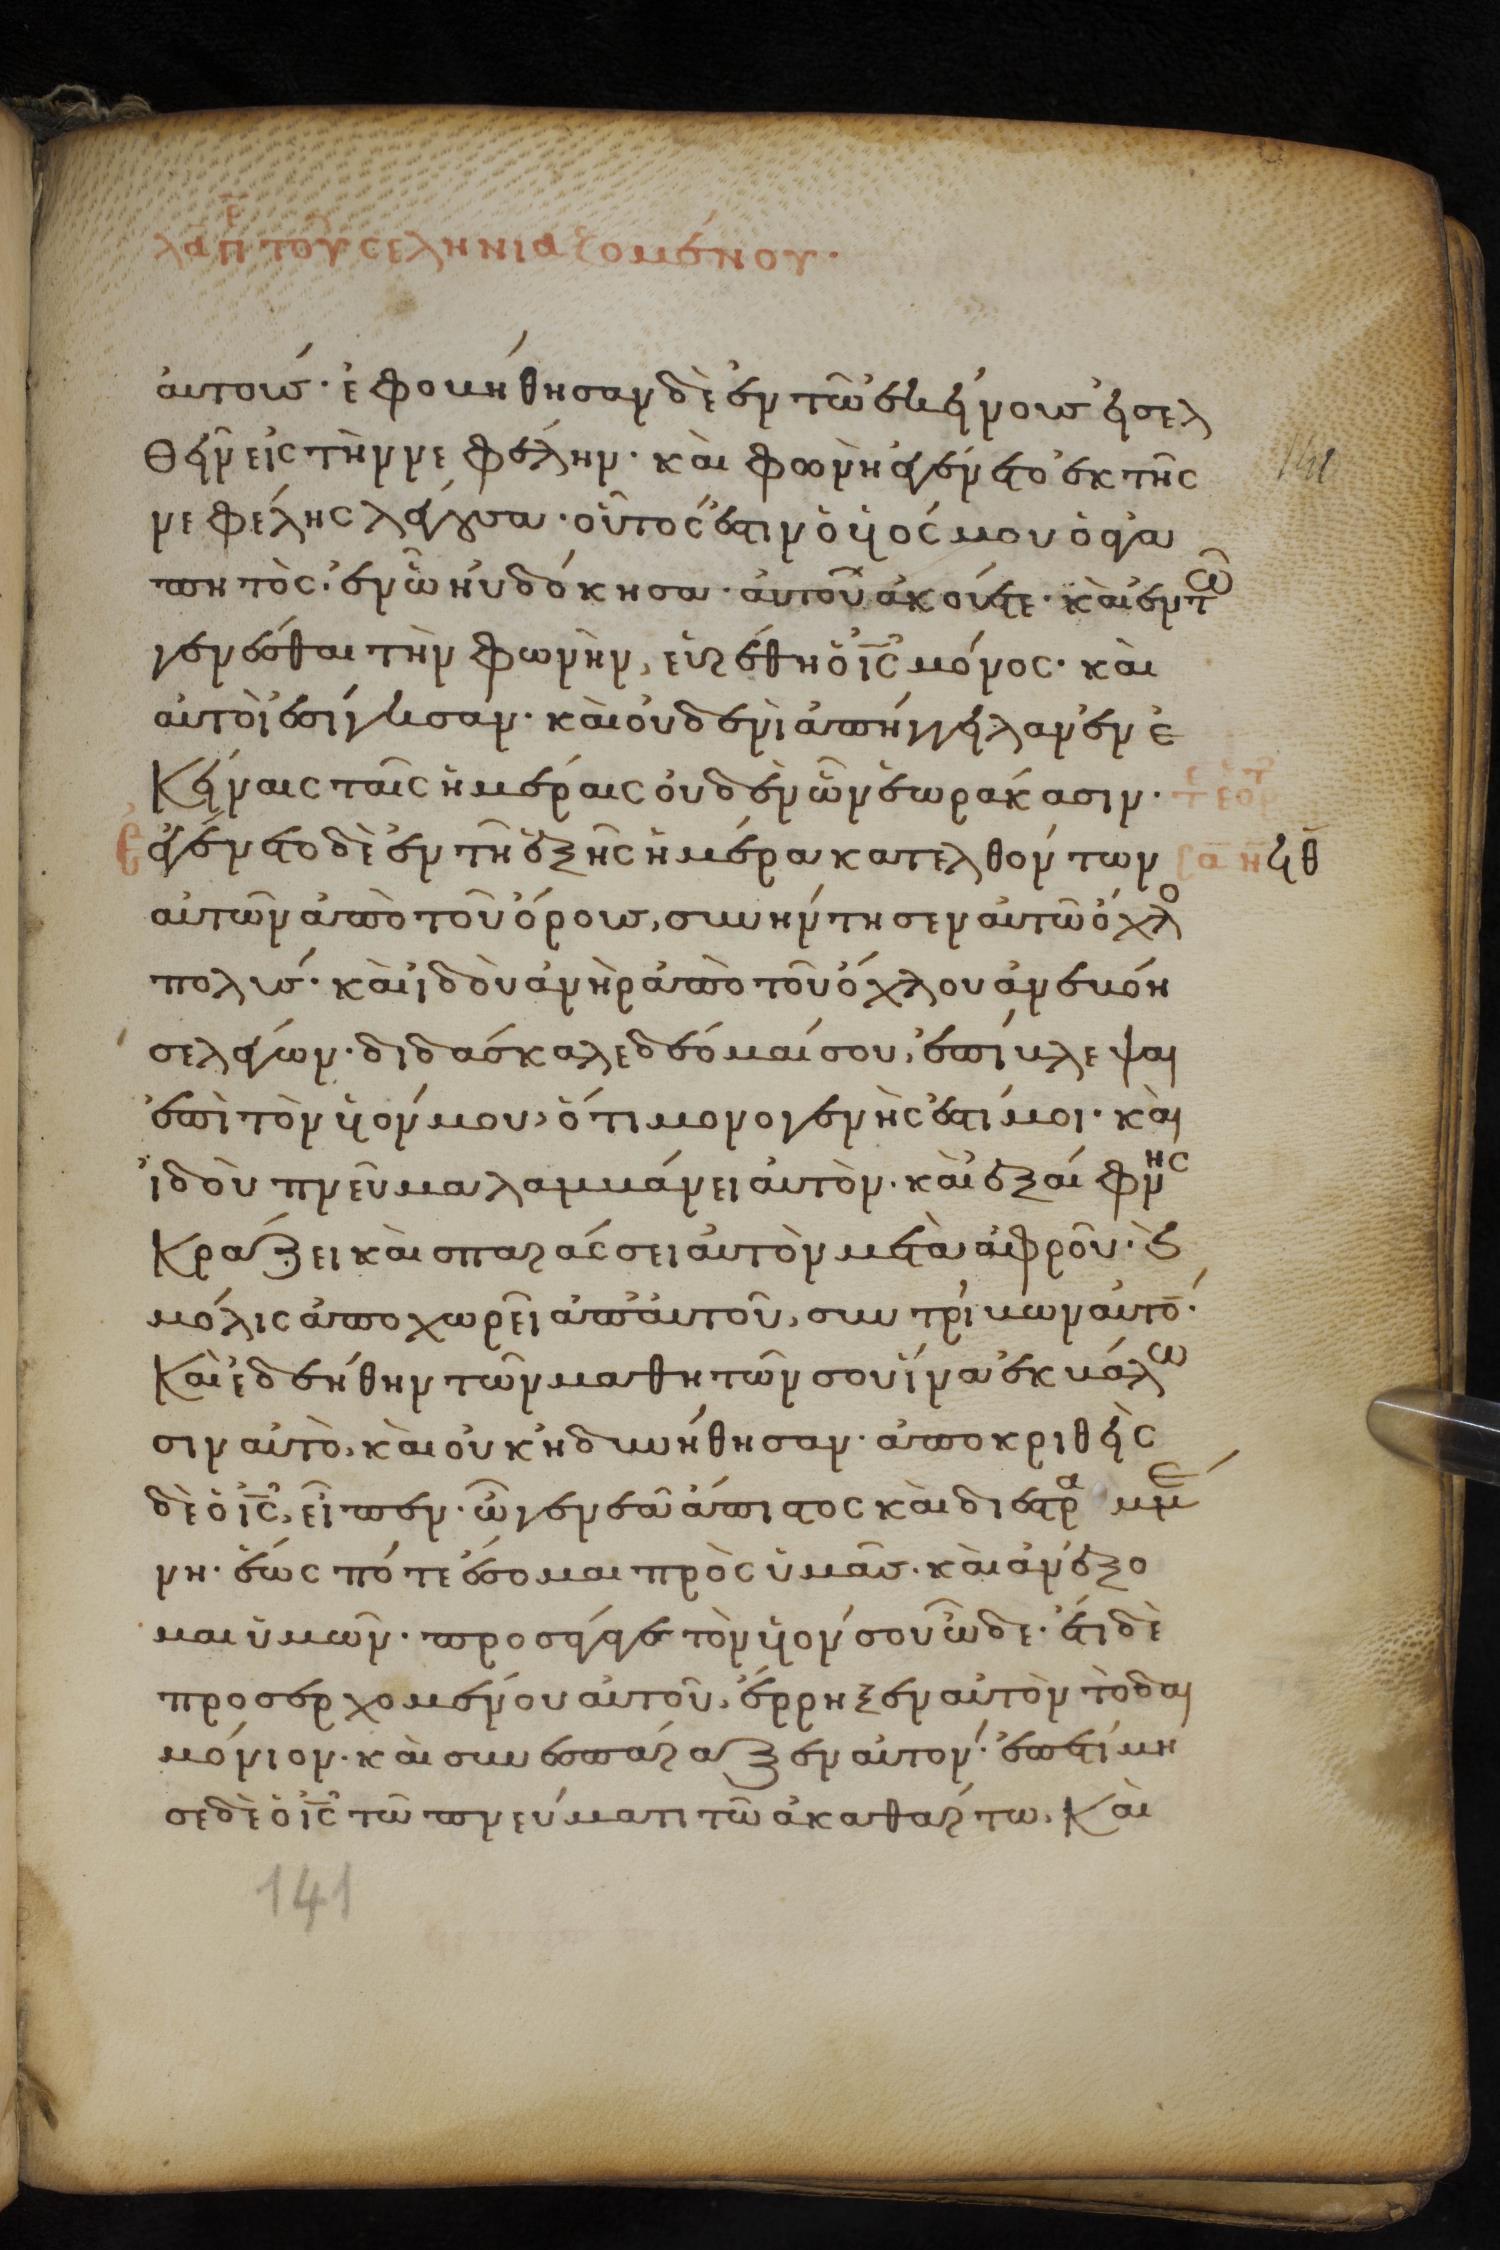 λα περ τοῦ σεληνιαζομένου·
αὐτούς· ἐφοβήθησαν δὲ ἐν τῶ ἐκείνους εἰσελ
θεῖν εἰς τὴν νεφέλην· καὶ φωνὴ ἐγένετο ἐκ τῆς
νεφέλης λέγουσα· οὗτος ἐστιν ὁ υἱός μου ὁ ἀγα
πητὸς· ἐν ᾧ ηὐδόκησα· αὐτοῦ ἀκούετε· καὶ ἐν τῶ
γενέσθαι τὴν φωνὴν, εὑρέθη ὁ ις μόνος· καὶ
αὐτοὶ ἐσίγησαν· καὶ οὐδενὶ ἀπήγγειλαν ἐν ἐ
κείναις ταῖς ἡμέραις οὐδὲν ὧν ἑωράκασιν·
ἐγένετο δὲ ἐν τῆ ἑξῆς ἡμέρα κατελθόντων
αὐτῶν ἀπὸ τοῦ ὄρους, συνήντησεν αὐτῶ ὄχλο
πολύς· καὶ ἰδοὺ ἀνὴρ ἀπὸ τοῦ ὄχλου ἀνεβόη
σε λέγων· διδάσκαλε δέομαί σου, ἐπίβλεψαι
ἐπὶ τὸν υἱόν μου, ὅτι μονογενὴς ἐστί μοι· καὶ
ἰδοὺ πνεῦμα λαμβάνει αὐτὸν· καὶ ἐξαίφνης
κράζει καὶ σπαράσσει αὐτὸν μετὰ ἀφροῦ· καὶ
μόλις ἀποχωρεῖ ἀπ' αὐτοῦ, συντρίβων αὐτό·
Καὶ ἐδεήθην τῶν μαθητῶν σου ἵνα ἐκβάλω
σιν αὐτὸ, καὶ οὐκ ἠδυνήθησαν· ἀποκριθεὶς
δὲ ὁ ις, εἶπεν· ὦ γενεὰ ἄπιστος καὶ διεστραμμέ
νη· ἕως πότε ἔσομαι πρὸς ὑμᾶς· καὶ ἀνέξο
μαι ὑμῶν· προσάγαγε τὸν υἱόν σου ὧδε· ἔτι δὲ
προσερχομένου αὐτοῦ, ἔρρηξεν αὐτὸν τὸ δαι
μόνιον· καὶ συνεσπάραξεν αὐτον· ἐπετίμη
σε δὲ ὁ ις τῶ πνεύματι τῶ ἀκαθάρτω, Καὶ
141